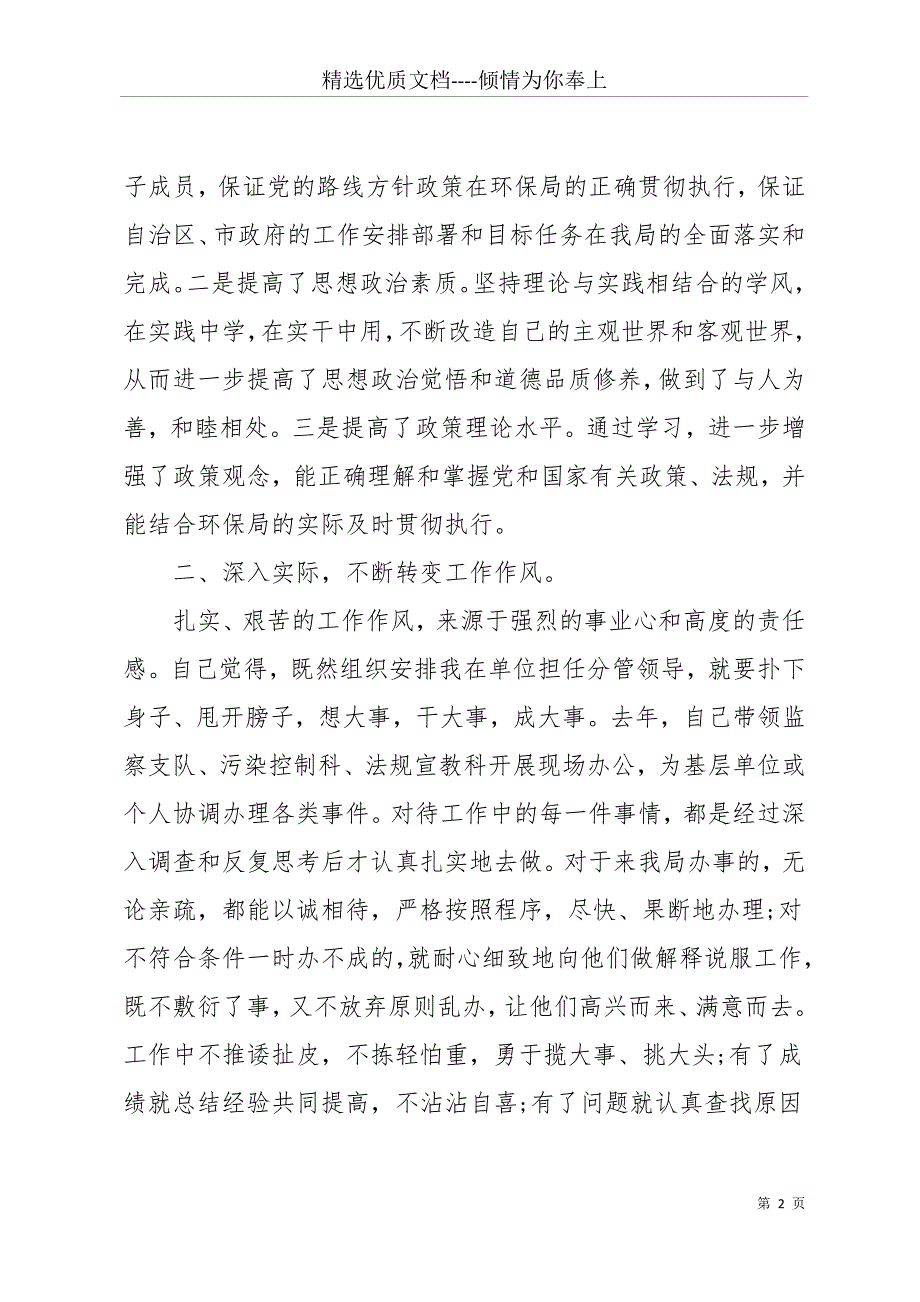 精选优质文档----倾情为你奉上
子成员，保证党的路线方针政策在环保局的正确贯彻执行，保证
自治区、市政府的工作安排部署和目标任务在我局的全面落实和
完成。二是提高了思想政治素质。坚持理论与实践相结合的学风，
在实践中学，在实干中用，不断改造自己的主观世界和客观世界，
从而进一步提高了思想政治觉悟和道德品质修养，做到了与人为
善，和睦相处。三是提高了政策理论水平。通过学习，进一步增
强了政策观念，能正确理解和掌握党和国家有关政策、法规，并
能结合环保局的实际及时贯彻执行。
二、深入实际，不断转变工作作风。
扎实、艰苦的工作作风，来源于强烈的事业心和高度的责任
感。自己觉得，既然组织安排我在单位担任分管领导，就要扑下
身子、甩开膀子，想大事，干大事，成大事。去年，自己带领监
察支队、污染控制科、法规宣教科开展现场办公，为基层单位或
个人协调办理各类事件。对待工作中的每一件事情，都是经过深
入调查和反复思考后才认真扎实地去做。对于来我局办事的，无
论亲疏，都能以诚相待，严格按照程序，尽快、果断地办理;对
不符合条件一时办不成的，就耐心细致地向他们做解释说服工作，
既不敷衍了事，又不放弃原则乱办，让他们高兴而来、满意而去。
工作中不推诿扯皮，不拣轻怕重，勇于揽大事、挑大头;有了成
绩就总结经验共同提高，不沾沾自喜;有了问题就认真查找原因
第 2 页